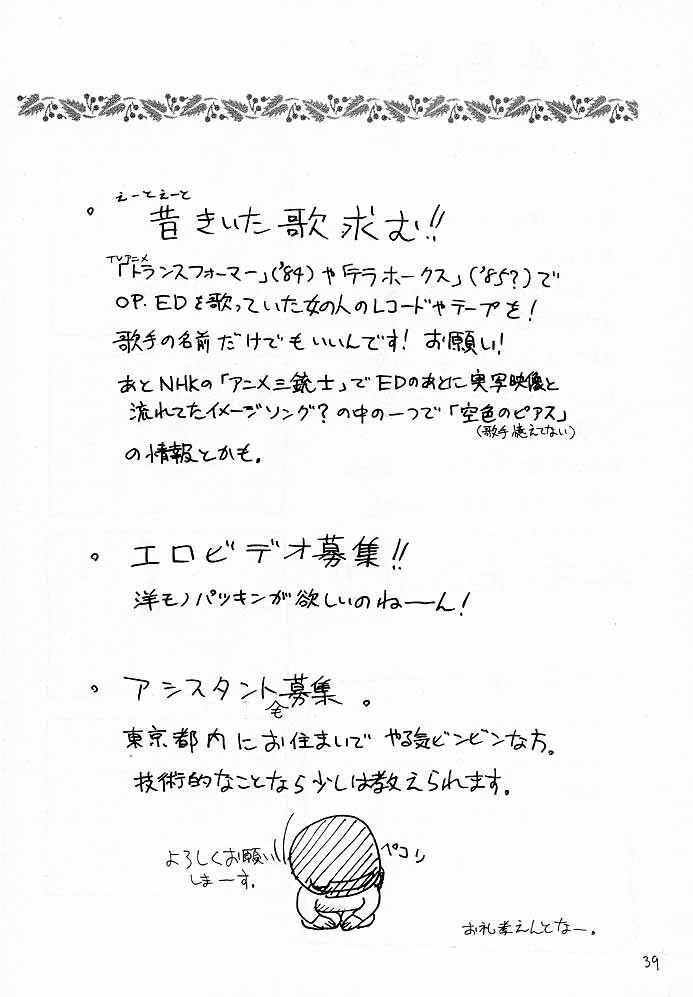 えーとえーと
。昔きいた歌求む!!
TVアニメ
「トランスフォーマー」('84)や「テラホークス」('85?)で
OP.EDを歌っていた女の人のレコードやテープを!
歌手の名前だけでもいいんです! お願い!
あとNHKの「アニメ三銃士」でEDのあとに実写映像と
流れてたイメージソング?の中の一つで「空色のピアス」
(歌手憶えてない)
の情報とかも。
。エロビデオ募集!!
洋モノパツキンが欲しいのねーん!
。アシスタント募集。
東京都内にお住まいで やる気ビンビンな方。
技術的なことなら少しは教えられます。
よろしくお願い
しまーす。
ペコリ
お礼考えんとなー。
39